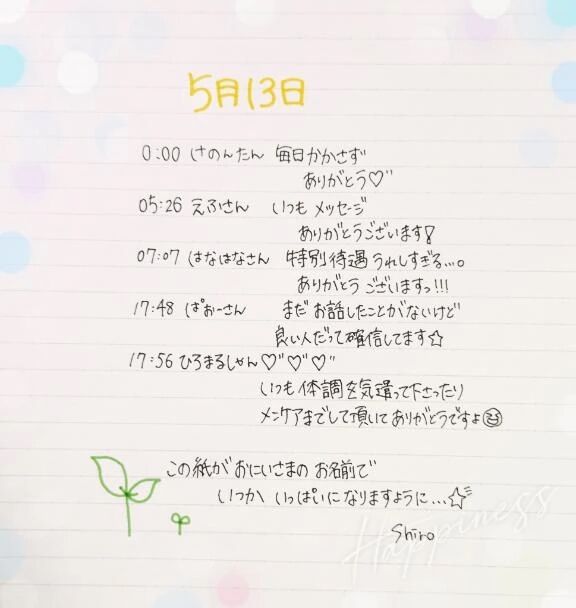 5月13日
0:00 さのんたん 毎日かかさず
ありがとう♡
05:26 えふさん いつもメッセージ
ありがとうございます!
07:07 はなはなさん 特別待遇うれしすぎる…。
ありがとうございますっ!!!
17:48 ぱおーさん まだお話したことがないけど
良い人だって確信してます☆
17:56 ひろまるしゃん♡♡♡
いつも体調を気遣って下さったり
メンケアまでして頂いてありがとうですよ
この紙がおにいさまのお名前で
いつかいっぱいになりますように…☆
Shiro
Happiness